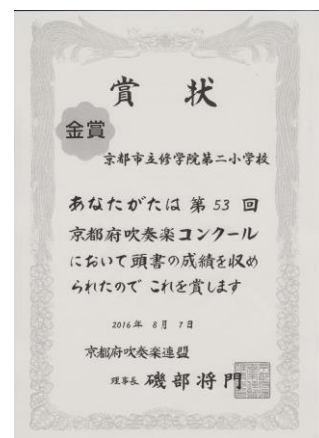 賞状
金賞
京都市立修学院第二小学校
あなたがたは 第 53 回
京都府吹奏楽コンクール
において頭書の成績を収め
られたので これを賞します
2016年 8月 7日
京都府吹奏楽連盟
理事長 磯部将門